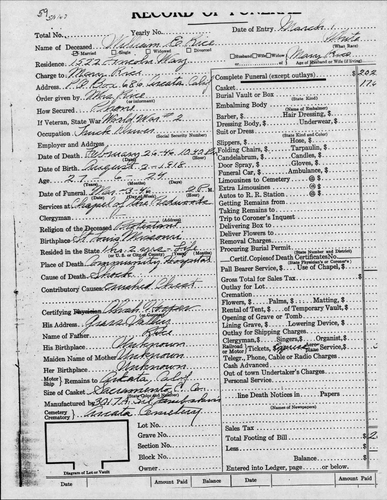 RECORD OF FUNERAL
Total No. Yearly No. Date of Entry March 1
Name of Deceased William E. Rice White
Married Single Widowed Divorced (What Race)
Residence 1522 Lincoln Way Husband Wife of Mary Rice
Charge to Mary Rice Age of Husband or Wife (if living)
P.O. Box 686 Arcata Calif
Order given by Mrs Rice
How Secured Phone
If Veteran, State War World War #2
Occupation Truck Driver
(Social Security Number)
Employer and Address
Date of Death February 26-46 10:30 P.M.
Date of Birth August 2- 1918
Age 27 6 24
Date of Funeral Mar-3-46 2 P.M.
Services at Chapel of the Redwoods
Clergyman
Religion of the Deceased Protestant
Birthplace St Louis Missouri
Resided in the State
Place of Death Community Hospital
Cause of Death Shock
Contributory Causes Crushed Chest
Certifying Physician
His Address Grass Valley
Name of Father Rice
His Birthplace Unknown
Maiden Name of Mother Unknown
Her Birthplace Unknown
Motor Ship Remains to Arcata, Calif
Size of Casket Sacramento C. Co.
Manufactured by
Cemetery Crematory Arcata Cemetery
Lot No.
Grave No.
Section No.
Block No.
Owner
Diagram of Lot or Vault
Complete Funeral (except outlays) $202
Casket 176
Burial Vault or Box
(State Kind)
Embalming Body
(Name of Embalmer)
Barber, Hair Dressing, $
Dressing Body, $ Underwear, $
Suit or Dress
(State Kind and Color)
Slippers, $ Hose, $
Folding Chairs, $ Tarpaulin, $
Candelabrum, $ Candles, $
Door Spray, $ Gloves, $
Funeral Car, $ Ambulance, $
Limousines to Cemetery @ $
Extra Limousines @ $
Autos to R. R. Station @ $
Getting Remains from
Taking Remains to
Trip to Coroner's Inquest
Delivering Box to
Deliver Flowers to
Removal Charges
Procuring Burial Permit
(State Number and District)
Certif. Copies of Death Certificate No.
(State Physician's or Coroner's)
Pall Bearer Service, $ Use of Chapel, $
Gross Total for Sales Tax $
Outlay for Lot
Cremation
Flowers, $ Palms, $ Matting, $
Rental of Tent, $ of Temporary Vault, $
Opening of Grave or Tomb
Lining Grave, $ Lowering Device, $
Outlay for Shipping Charges
Clergyman, $ Singers, $ Organist, $
Railroad or Motor Tickets, $ Service, $
Telegr., Phone, Cable or Radio Charges
Cash Advanced
Out of town Undertaker's Charges
Personal Service
line Death Notices in Papers
(Names of Newspapers)
Sales Tax
Total Footing of Bill $2
Less
Balance $
Entered into Ledger, page or below.
Date Amount Paid Balance Date Amount Paid Balance